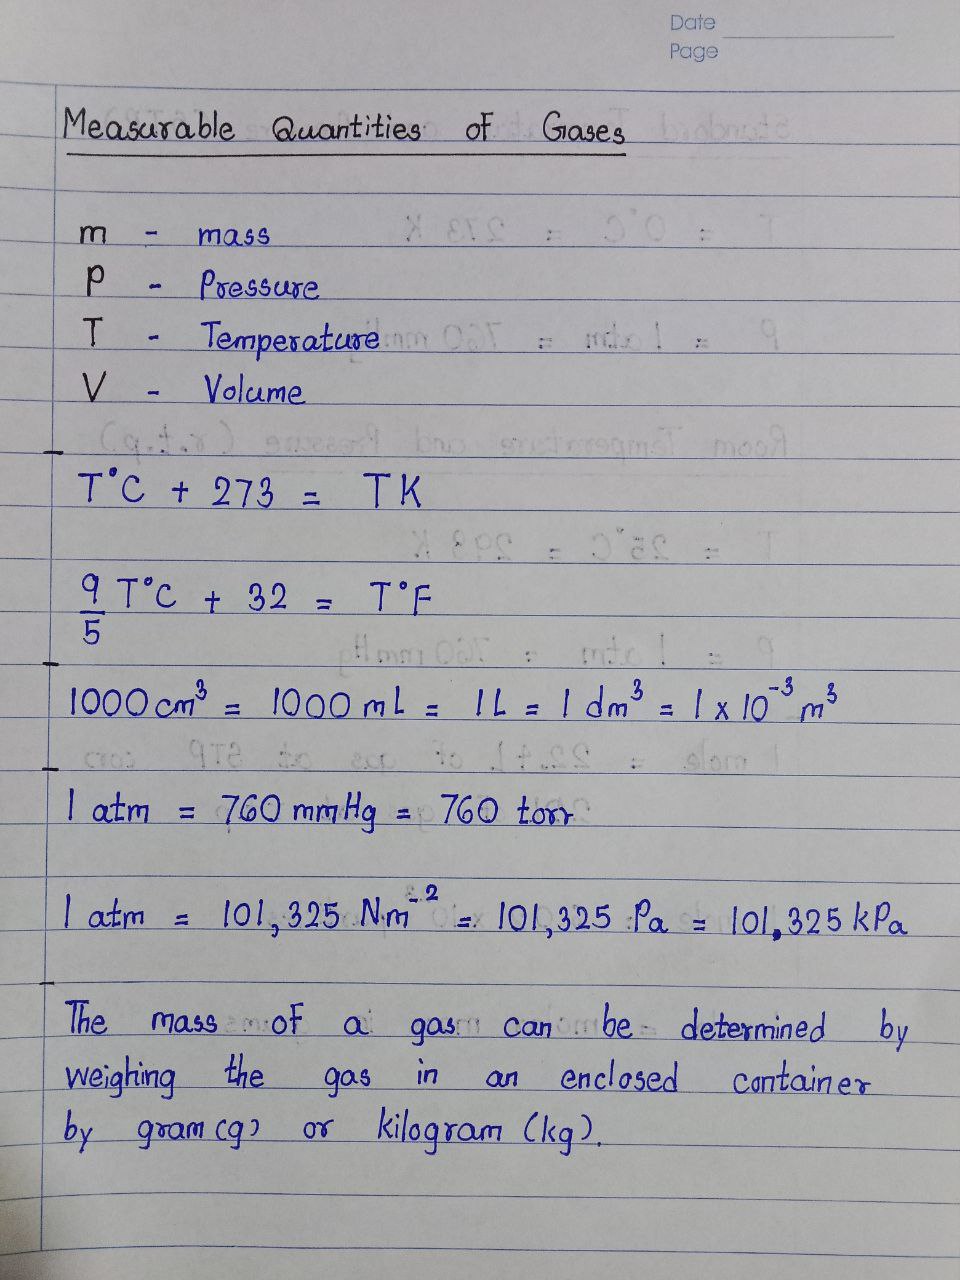 Date
Page
Measurable Quantities of Gases
m - mass
P - Pressure
T - Temperature
V - Volume
T°C + 273 = TK
9/5 T°C + 32 = T°F
1000 cm³ = 1000 mL = 1L = 1 dm³ = 1 x 10⁻³ m³
1 atm = 760 mmHg = 760 torr
1 atm = 101,325 N.m⁻² = 101,325 Pa = 101.325 kPa
The mass of a gas can be determined by
weighing the gas in an enclosed container
by gram (g) or kilogram (kg).